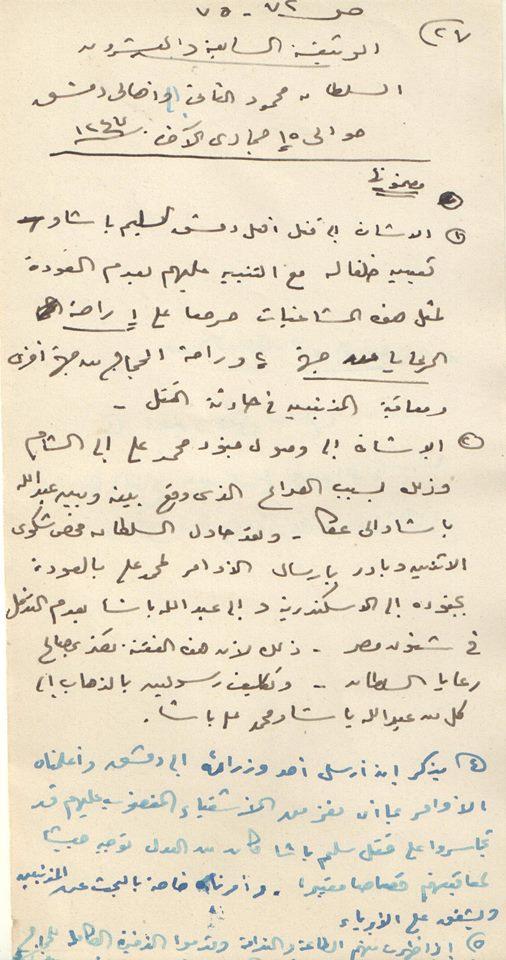 ص ٧٢ - ٧٥
٢٧
الوثيقة السابعة والعشرون
السلطان محمود الثاني الى أهالي دمشق
حوالي ١٥ جمادى الآخر ١٢٤٧
مضمونها
١ الاشارة الى قتل أهل دمشق لسليم باشا و
تعيين خلفا له مع التنبيه عليهم بعدم العودة
لمثل هذه المشاغبات حرصا على راحة
الرعايا من جهة وراحة الحجاج من جهة أخرى
ومعاقبة المذنبين في حادثة القتل -
٢ الاشارة الى وصول جنود محمد علي الى الشام
وذلك بسبب العداء الذي وقع بينه وبين عبد الله
باشا والي عكا - ولقد حاول السلطان فحص شكوى
الاثنين وبادر بإرسال الأوامر لمحمد علي بالعودة
بجنوده الى الاسكندرية و الى عبد الله باشا بعدم التدخل
في شئون مصر - ذلك لأن هذه الفتنة تضر بصالح
رعايا السلطان - وتكليف رسولين بالذهاب إلى
كل من عبد الله باشا ومحمد علي باشا.
يذكر إنه أرسل أحد وزرائه الى دمشق وأعلمناه
الأوامر بما أن نفر من الأشقياء المغضوب عليهم قد
تجاسروا على قتل سليم باشا كان من العدل توجيه جيشا
لمعاقبتهم قصاصا معتبرا. وأمرناه خاصة بالبحث عن المذنبين
ويشفق على الأبرياء
٥ إذا ظهرت منهم الطاعة والندامة وقدموا الذخيرة الكاملة للحجاج